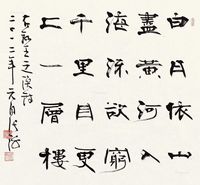 白日依山
盡黃河入
海流欲窮
千里目更
上一層樓
王之渙詩
二〇一二年元月